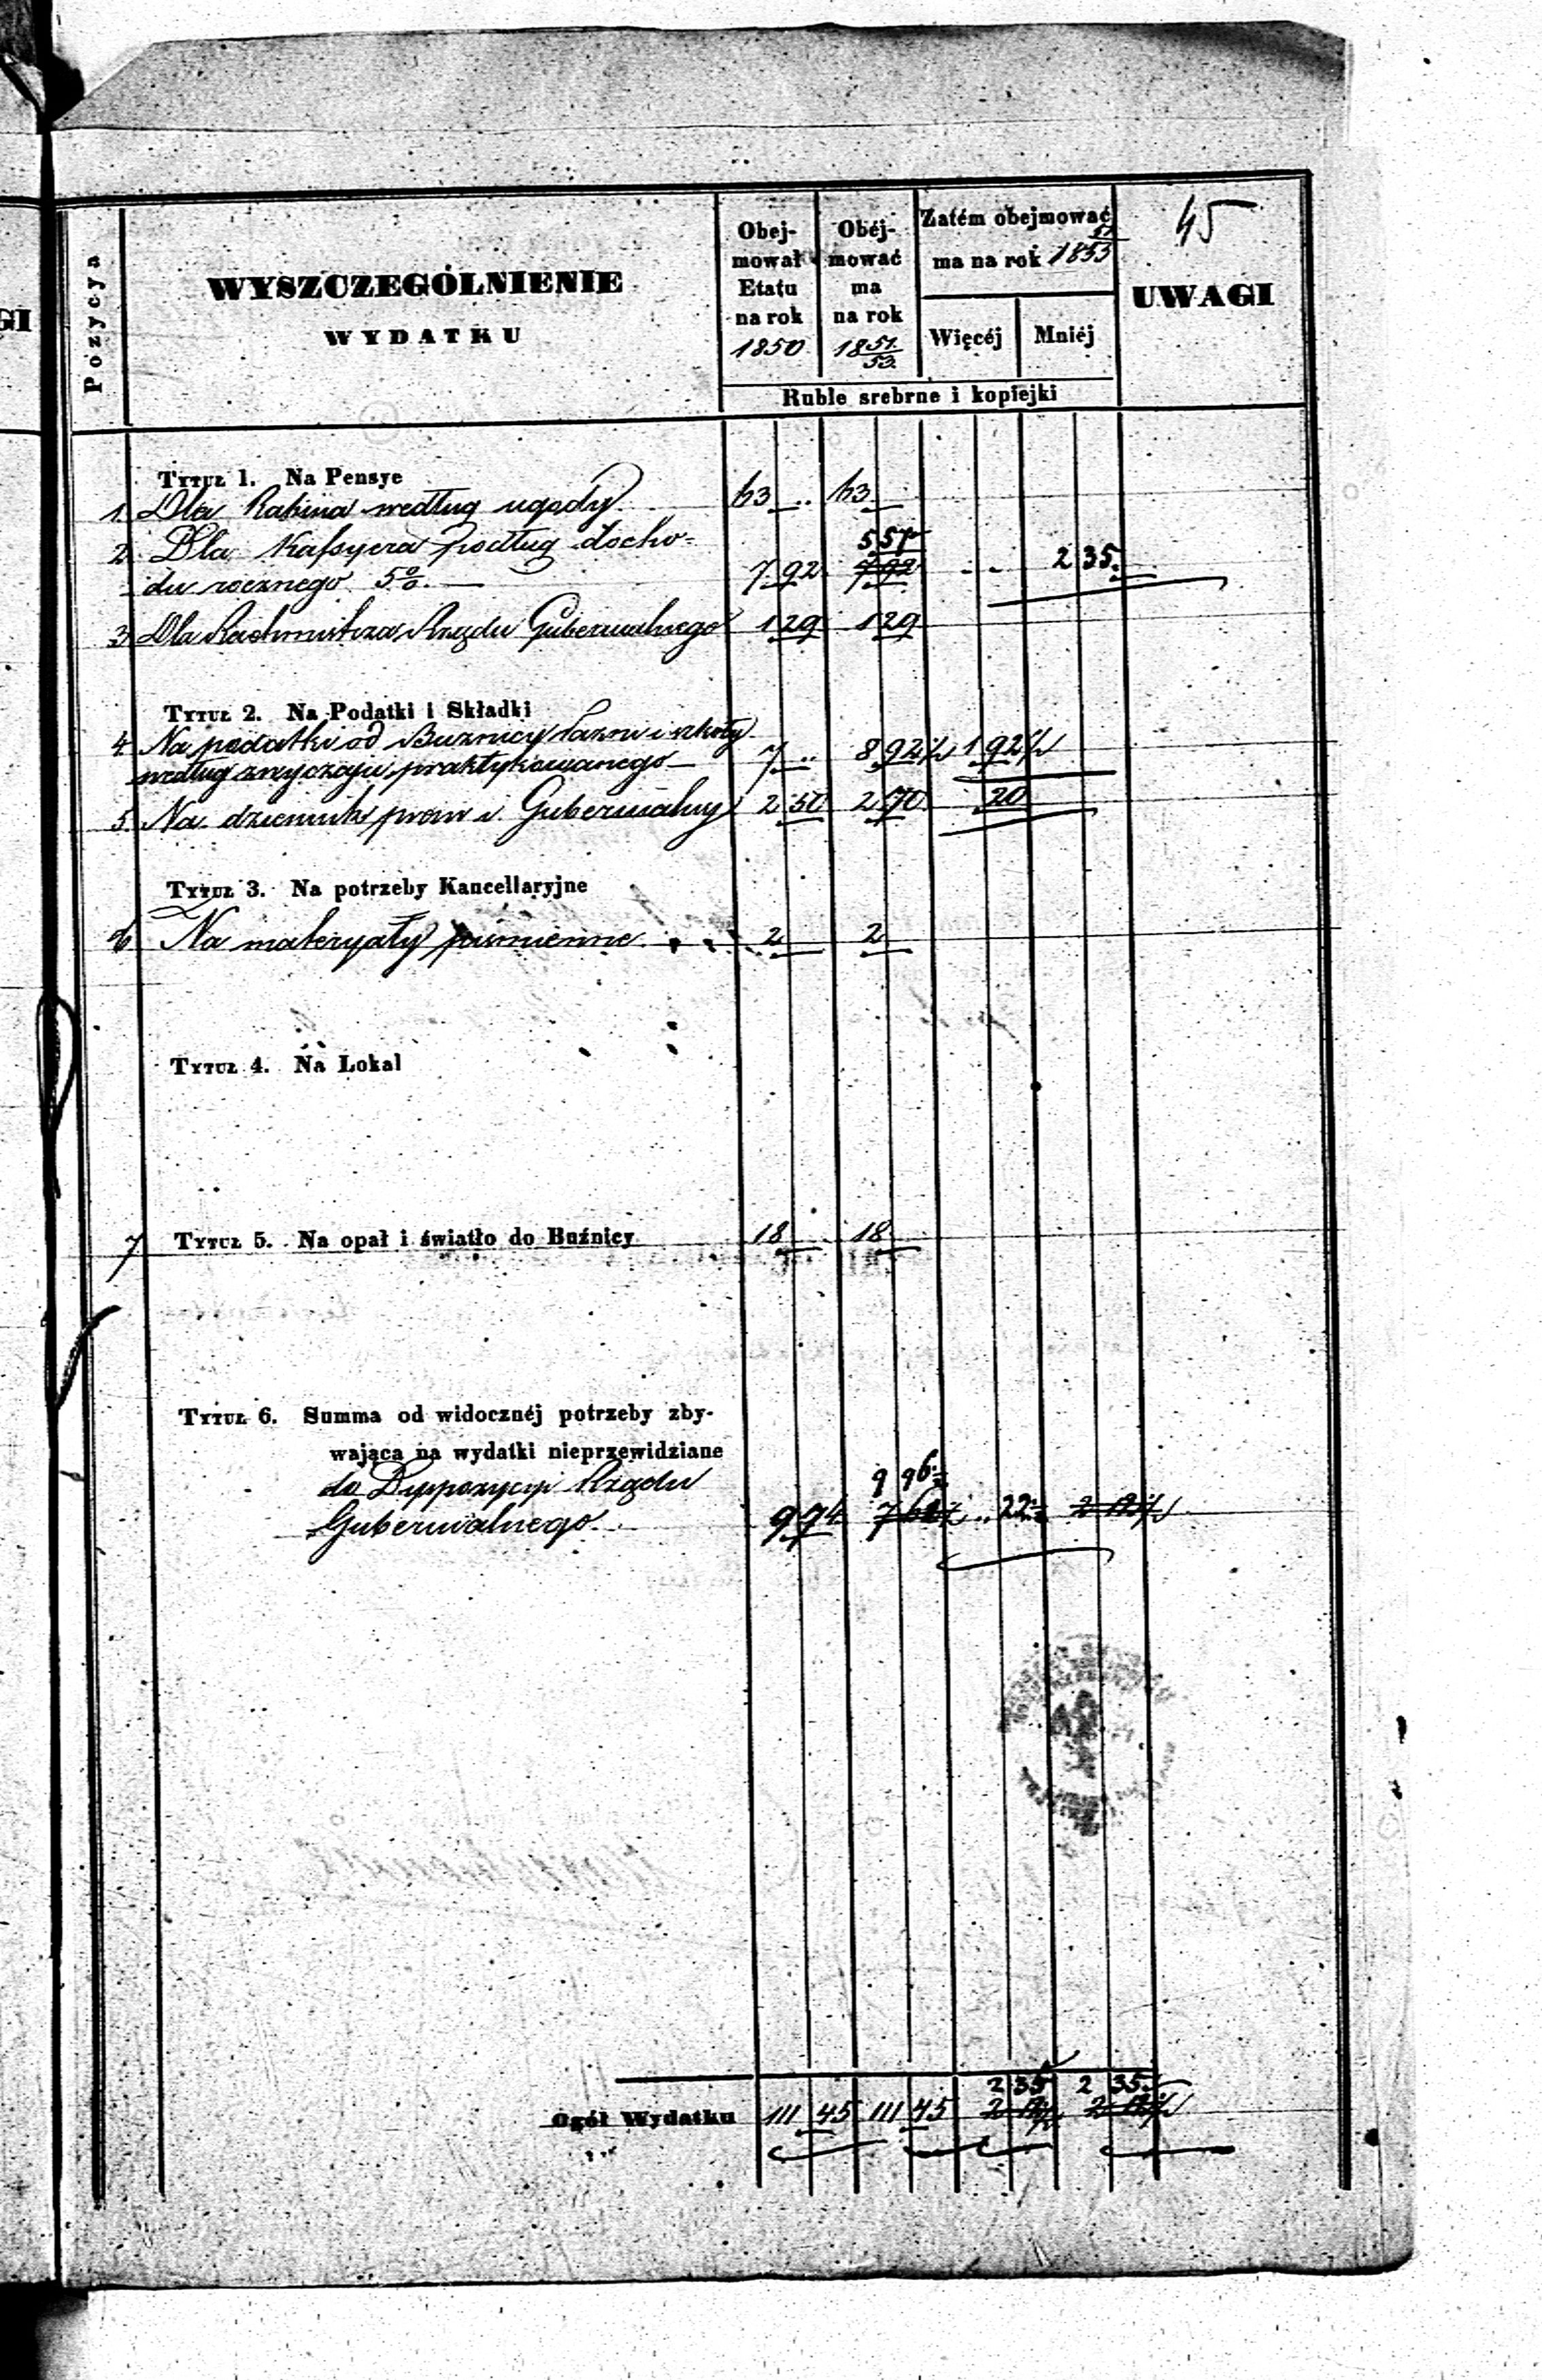 GI
45
Pozycya
WYSZCZEGÓLNIENIE
WYDATKU
Obej-
mował
Etatu
na rok
1850
Obéj-
mować
ma
na rok
18 51/53
Zatém obejmować
ma na rok 18 51/53
Więcéj
Mniéj
UWAGI
Ruble srebrne i kopiejki
Tytuł 1. Na Pensye
1. Dla Rabina według ugody 63 .. 63
2. Dla Kassyera podług docho=
5 57
du rocznego 5% 7 92 7 92 .. 2 35
3. Dla Rachmistrza Rządu Gubernialnego 1 29 1 29
Tytuł 2. Na Podatki i Składki
4. Na podatki od Buźnicy Łaźni i szkoły
według zwyczaju praktykowanego 7 .. 8 92½ 1 92½
5. Na dziennik praw i Gubernialny 2 50 2 70 20
Tytuł 3. Na potrzeby Kancellaryjne
6. Na materyały piśmienne 2 2
Tytuł 4. Na Lokal
7 Tytuł 5. Na opał i światło do Buźnicy 18 18
Tytuł 6. Summa od widocznéj potrzeby zby-
wająca na wydatki nieprzewidziane
do Dyspozycyi Rządu
9 96
Gubernialnego 9 74 .. 22
2 35 2 35
Ogół Wydatku 111 45 111 45